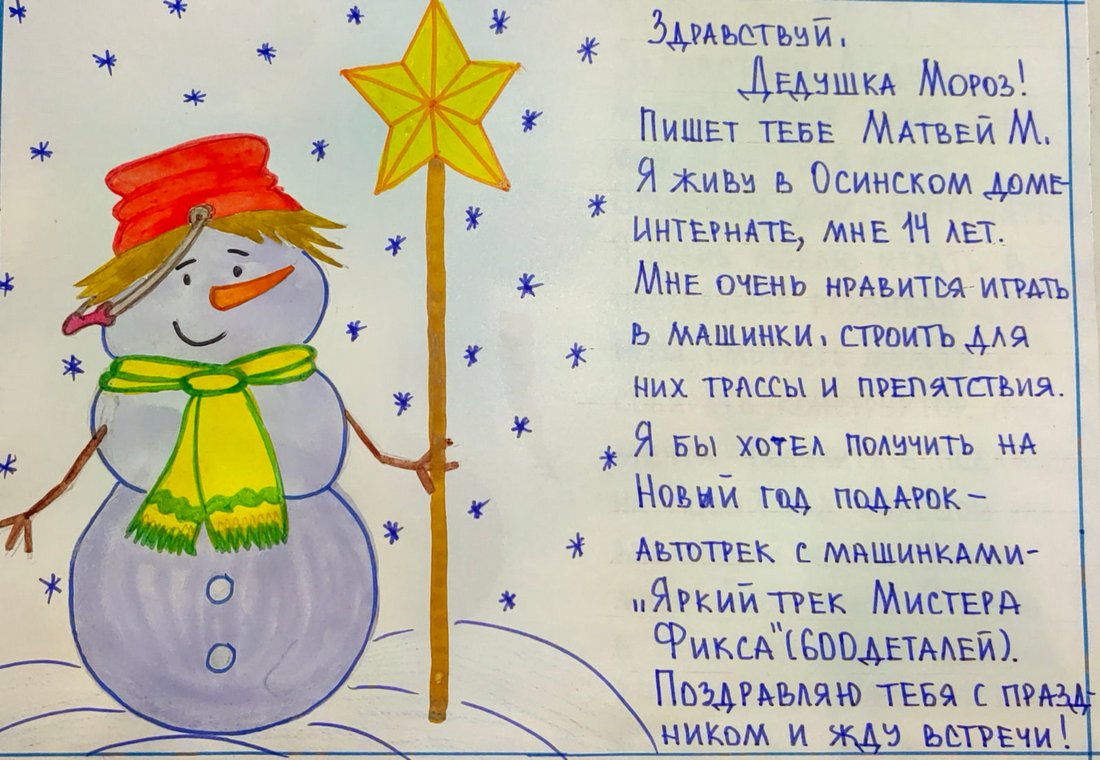 Здравствуй,
Дедушка Мороз!
Пишет тебе Матвей М.
Я живу в Осинском доме-
интернате, мне 14 лет.
Мне очень нравится играть
в машинки, строить для
них трассы и препятствия.
Я бы хотел получить на
Новый год подарок –
автотрек с машинками –
„Яркий трек Мистера
Фикса" (600 деталей).
Поздравляю тебя с празд-
ником и жду встречи!